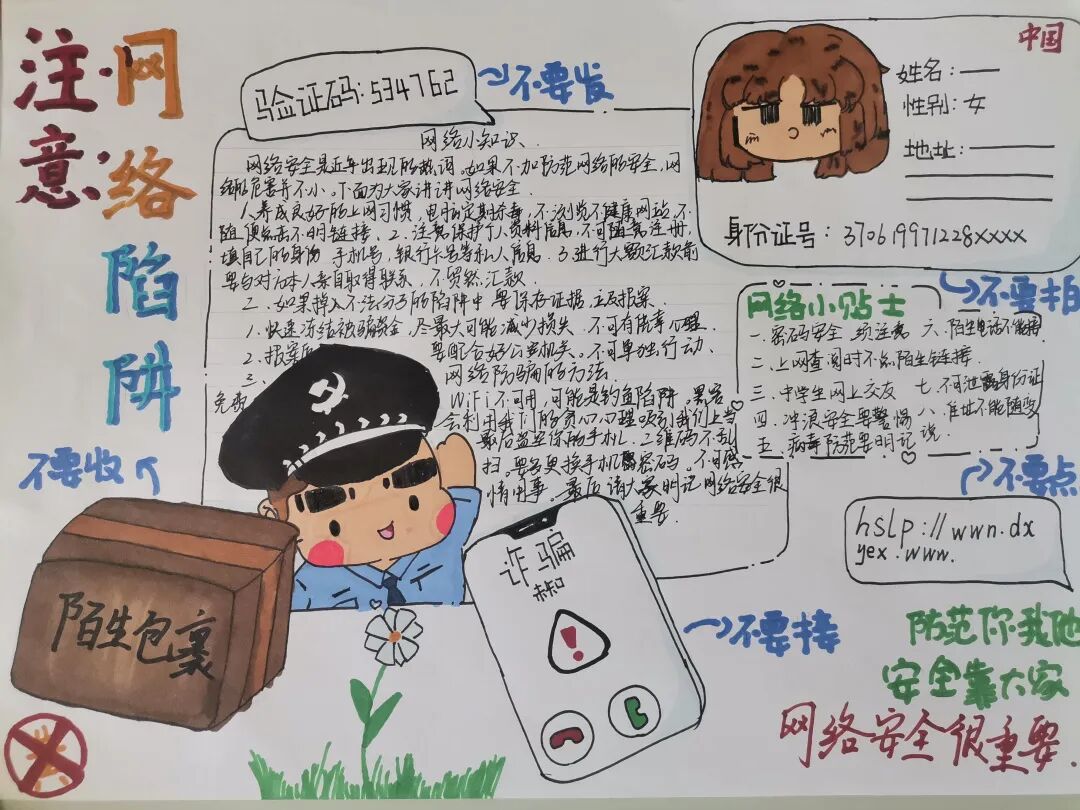 注意
网络陷阱
验证码:534762
不要发
中国
姓名:
性别:女
地址:
身份证号:370619971228xxxx
不要拍
网络小知识.
网络安全是近年出现的热词.如果不加防范网络的安全,网
络的危害并不小。下面为大家讲讲网络安全.
养成良好的上网习惯,电脑定期杀毒,不浏览不健康网站,不
随便点击不明链接、2、注意保护个人资料信息,不可随意注册,
填自己的身份 手机号,银行卡号等私人信息.3进行大额汇款前
要与对方本人亲自取得联系.不贸然汇款
二、如果掉入不法分子的陷阱中 要保存证据.立及报案.
1.快速冻结被骗资金,尽最大可能减少损失.不可有侥幸心理.
2.报案后
要配合好公安机关。不可单独行动、
三、
网络防骗的方法
免费
WiFi不可用,可能是钓鱼陷阱,黑客
会利用我们的贪心心理吸引我们上当
最后盗走你的手机.二维码不乱
扫.要多更换手机密码。不可感
情用事、最后请大家明记网络安全很
重要.
网络小贴士
一.密码安全 须注意
二.上网查阅时不点陌生链接.
三.中学生网上交友
四.冲浪安全要警惕
五.病毒防范要明记
六.陌生电话不能接
七.不可泄露身份证
八.住址不能随便
说.
不要收
陌生包裹
不要点
hslp://wwn.dx
yex.www.
诈骗
未知
!
不要接
防范你我他
安全靠大家
网络安全很重要.